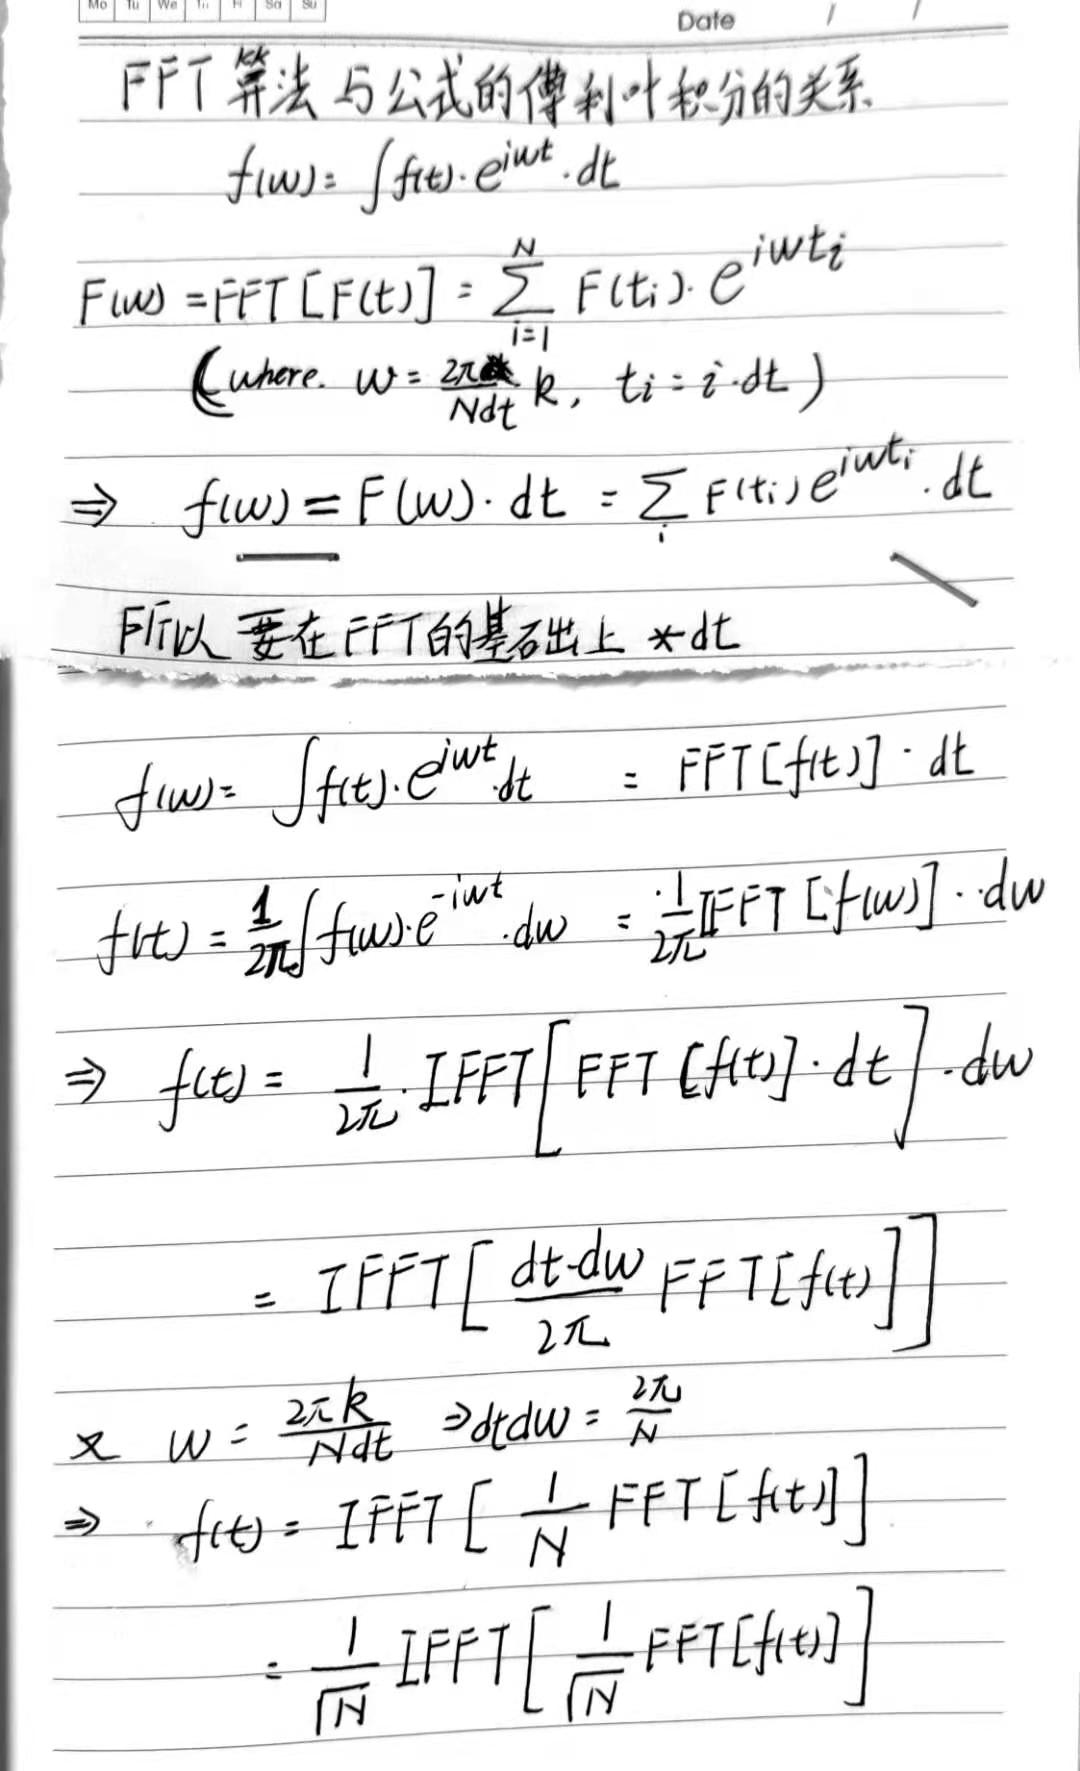 Mo Tu We Th Fr Sa Su
Date / /
FFT 算法与公式的傅利叶积分的关系
f(w) = ∫f(t)·e^{iwt}·dt
F(w) = FFT[F(t)] = \sum_{i=1}^{N} F(t_i)·e^{iwt_i}
(where. w = \frac{2π}{Ndt} k, t_i = i·dt)
⇒ f(w) = F(w)·dt = \sum_i F(t_i) e^{iwt_i}·dt
所以要在FFT的基础上 *dt
f(w) = ∫f(t)·e^{iwt}·dt = FFT[f(t)]·dt
f(t) = \frac{1}{2π}∫f(w)·e^{-iwt}·dw = \frac{1}{2π}IFFT[f(w)]·dw
⇒ f(t) = \frac{1}{2π}·IFFT[FFT[f(t)]·dt]·dw
= IFFT[\frac{dt·dw}{2π} FFT[f(t)]]
又 w = \frac{2πk}{Ndt} ⇒ dtdw = \frac{2π}{N}
⇒ f(t) = IFFT[\frac{1}{N} FFT[f(t)]]
= \frac{1}{\sqrt{N}} IFFT[\frac{1}{\sqrt{N}} FFT[f(t)]]